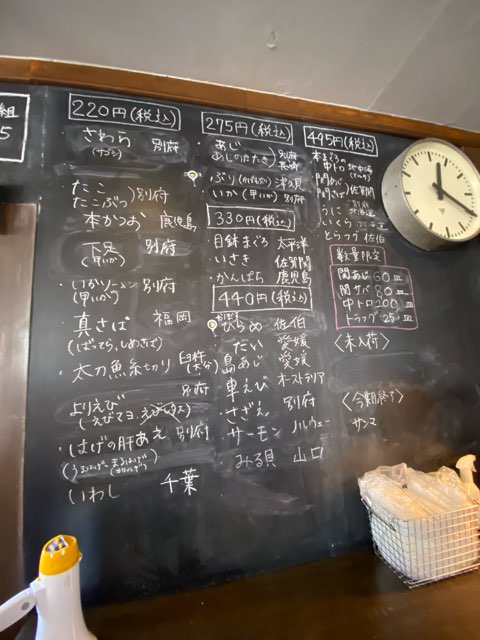 組
5
220円(税込)
・さわら 別府
(サゴシ)
・たこ
たこぶつ 別府
・本かつお 鹿児島
・下足 別府
(甲いか)
・いかソーメン 別府
(甲いか)
・真さば 福岡
(ばってら,しめさば)
・太刀魚糸切り 臼杵
(大分)
別府
よりえび
(えびマヨ
・はげの肝あえ 別府
いわし 千葉
275円(税込)
・あじ
あじのたたき 別府
長崎
・ぶり 津久見
・いか(甲いか) 別府
330円(税込)
・目鉢まぐろ 太平洋
・いさき 佐賀関
・かんぱち 鹿児島
440円(税込)
ひらめ 佐伯
・たい 愛媛
・島あじ 愛媛
・車えび オーストラリア
・さざえ 別府
・サーモン ノルウェー
・みる貝 山口
495円(税込)
本まぐろの
中トロ 地中海
関あじ
関さば 佐賀関
うに
いくら
とらフグ 佐伯
数量限定
関あじ 60皿
関サバ 80皿
中トロ 200皿
トラフグ 25皿
〈未入荷〉
〈今期終了〉
サンマ